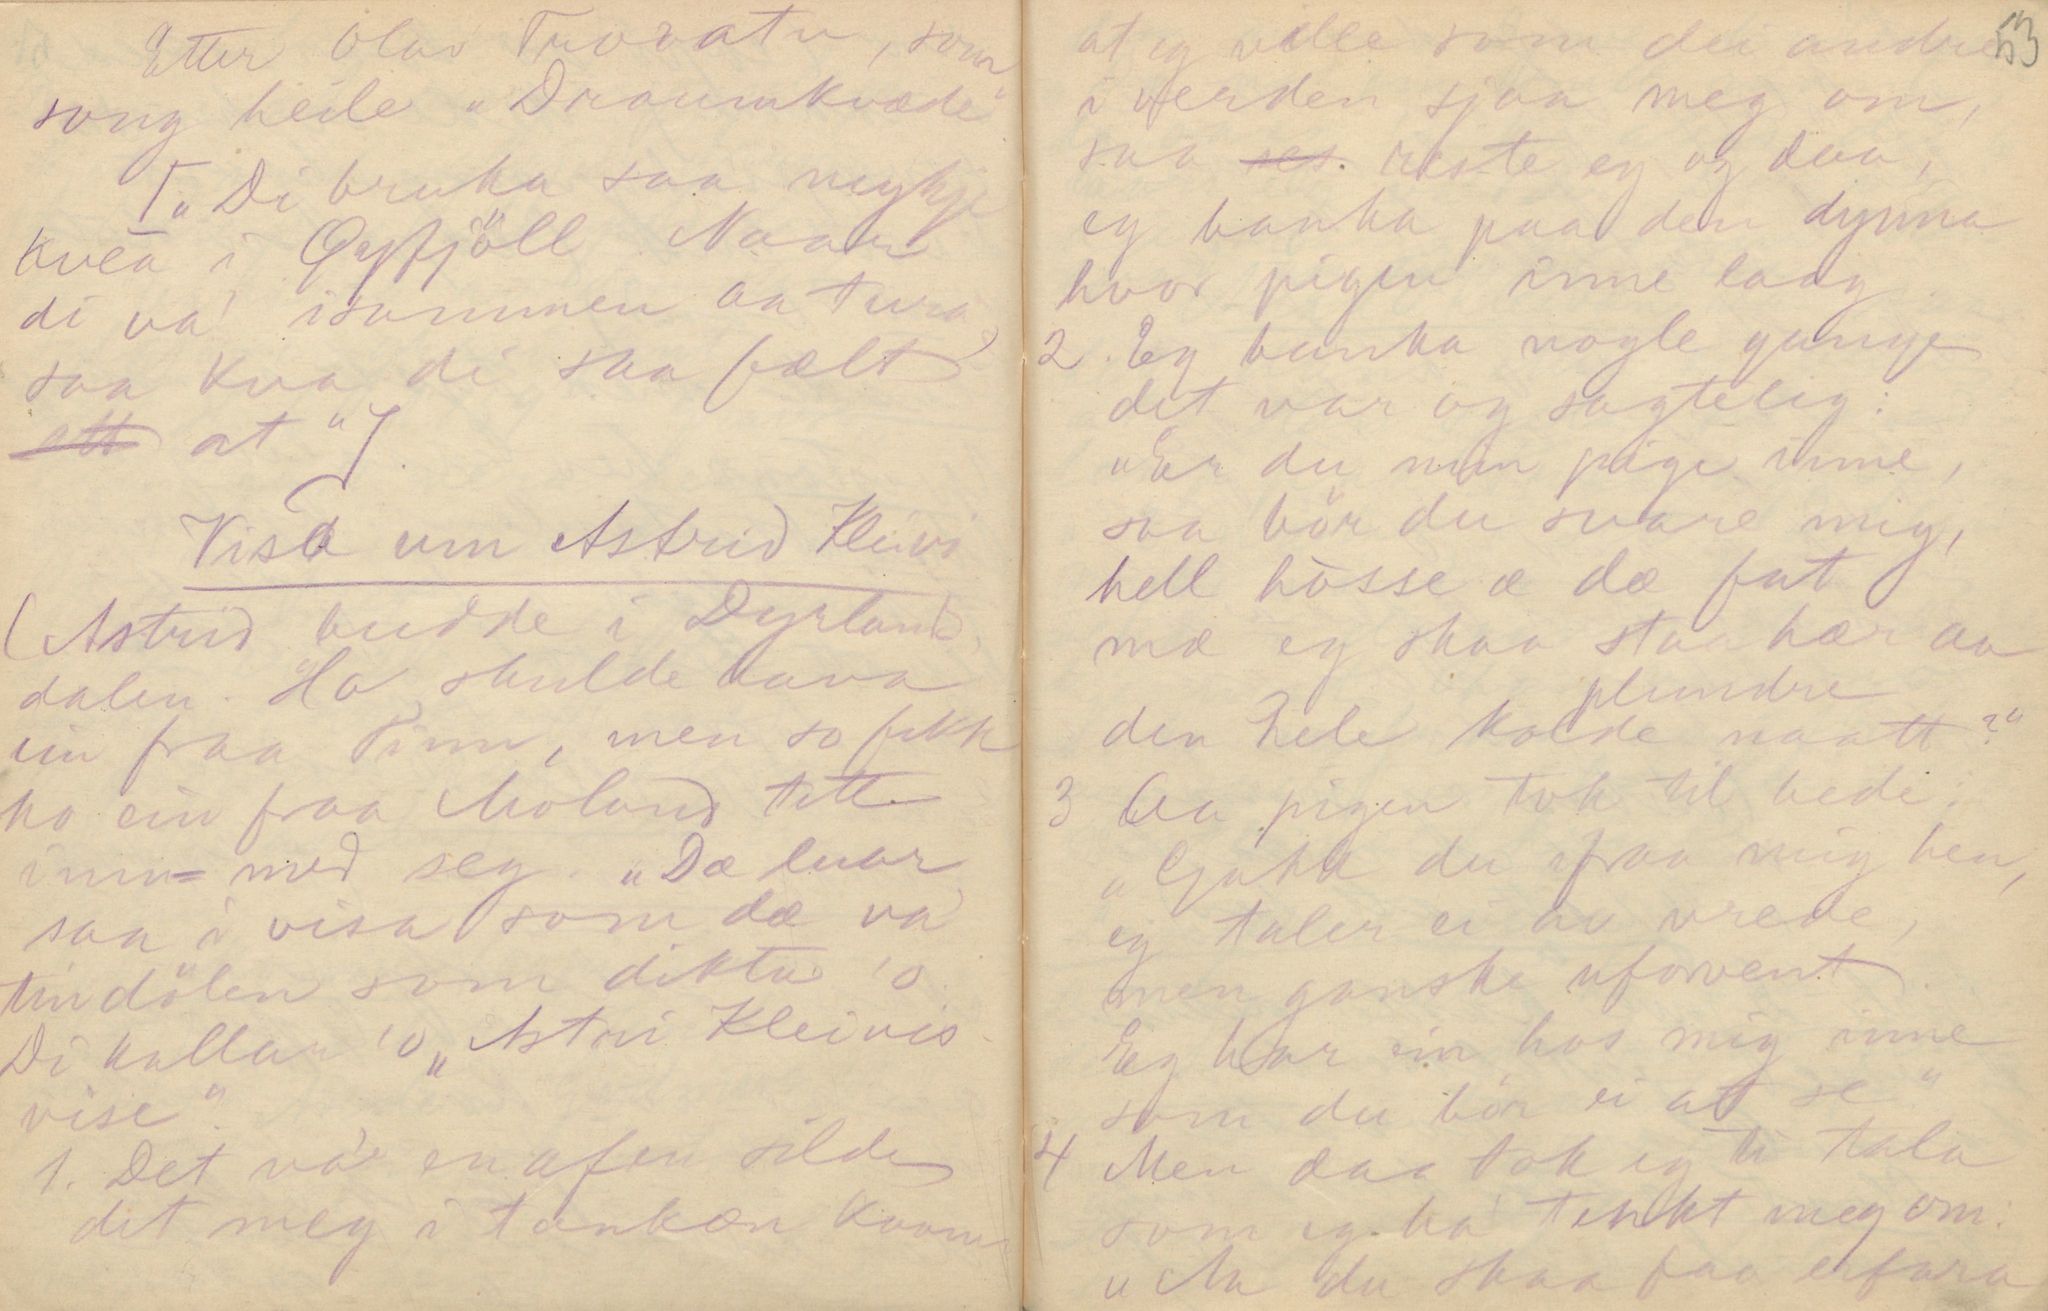 Etter Olav Trovatn, som
song heile "Draumkvæde"
["Di bruka saa mykje
kvea i Øyfjöll. Naar
di va' isammen aa tura
saa kva di saa fælt
att at"].
Visa um Astrid Kleivi
(Astrid budde i Dyrlands
dalen. Ho skulde hava
ein fraa Tinn, men so fekk
ho ein fraa Moland tett
inn= med seg. "Dæ luar
saa i visa som dæ va
tindölen som dikta 'o.
Di kallar 'o "Astri Kleivis-
vise".
1. Det va' en afen silde
det meg i tankæn kvam
53
at eg vilde som dei andre
i verden sjaa meg om,
saa ses. reiste eg og daa,
eg banka paa den dynna
hvor pigen inne laag.
2. Eg banka nogle gange
det var og sagtelig:
"Er du min pige inne,
saa bör du svare mig,
hell hòsse æ dæ fat
mæ eg skaa staa hær aa
plundre
den hele kolde naatt?"
3 Aa pigen tok til bede:
"Gjakk du ifraa mig hen,
eg taler ei av vrede,
men ganske uforvent.
Eg har ein hos mig inne
som du bör ei at se"
4 Men daa tok eg ti tala
som eg ha' tenkt meg om:
"Aa du skaa faa erfara